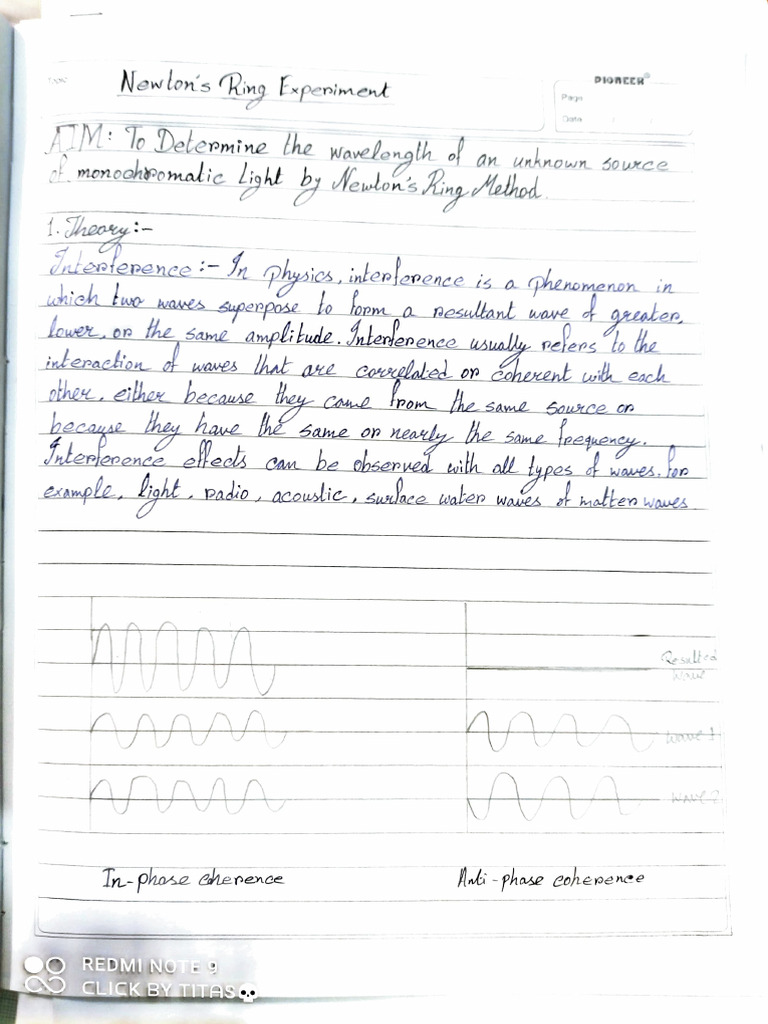 Newton's Ring Experiment
PIONEER
Page
Date
AIM: To Determine the wavelength of an unknown source
of monochromatic Light by Newton's Ring Method.
1. Theory:-
Interference:- In physics, interference is a phenomenon in
which two waves superpose to form a resultant wave of greater,
lower, or the same amplitude. Interference usually refers to the
interaction of waves that are correlated or coherent with each
other, either because they came from the same source or
because they have the same or nearly the same frequency.
Interference effects can be observed with all types of waves, for
example, light, radio, acoustic, surface water waves of matter waves
Resulted
wave
wave 1
wave 2
In-phase coherence
Anti-phase coherence
REDMI NOTE 9
CLICK BY TITAS💀